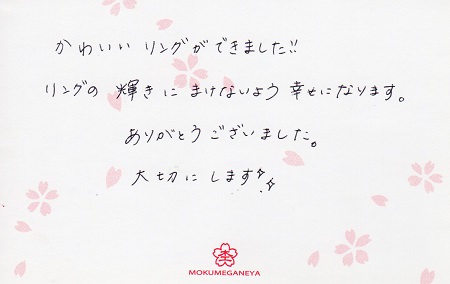 かわいい リングができました!!
リングの 輝きに まけないよう 幸せになります。
ありがとうございました。
大切にします
MOKUMEGANEYA